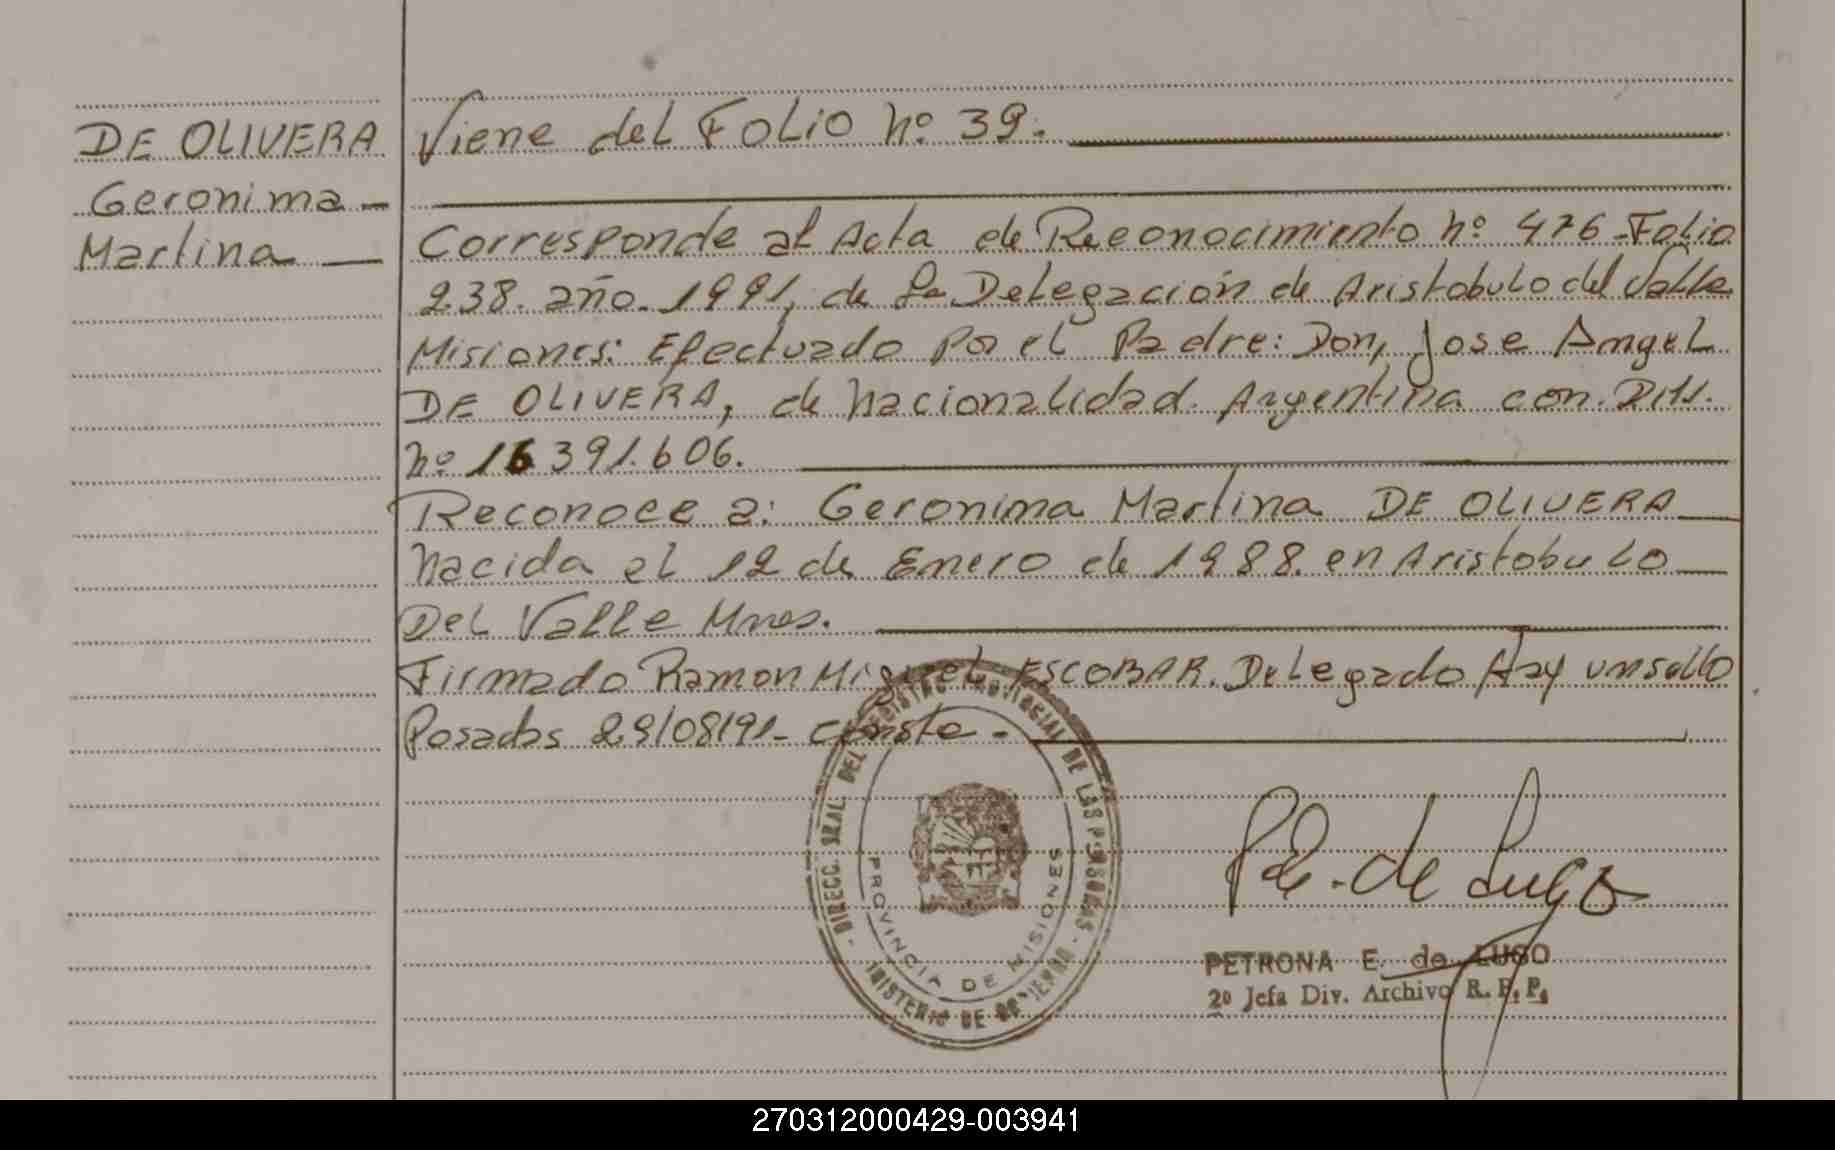 DE OLIVERA
Geronima
Martina
Viene del Folio nº 39.
Corresponde al Acta de Reconocimiento nº 476 - Folio
238. año. 1991, de la Delegación de Aristobulo del Valle
Misiones: Efectuado Por el Padre: Don, Jose Angel
DE OLIVERA, de Nacionalidad. Argentina con. D.N.I.
nº 16 391.606.
Reconoce a: Geronima Martina DE OLIVERA
Nacida el 12 de Enero de 1988. en Aristobulo
Del Valle Mnes.
Firmado Ramon Miguel ESCOBAR. Delegado Hay un sello
Posadas 29/08/91 - Conste -
DIRECC. GRAL. DEL REGISTRO PROVINCIAL DE LAS PERSONAS - MINISTERIO DE GOBIERNO
PROVINCIA DE MISIONES
P.E. de Lugo
PETRONA E. de LUGO
2º Jefa Div. Archivo R. P. P.
270312000429-003941